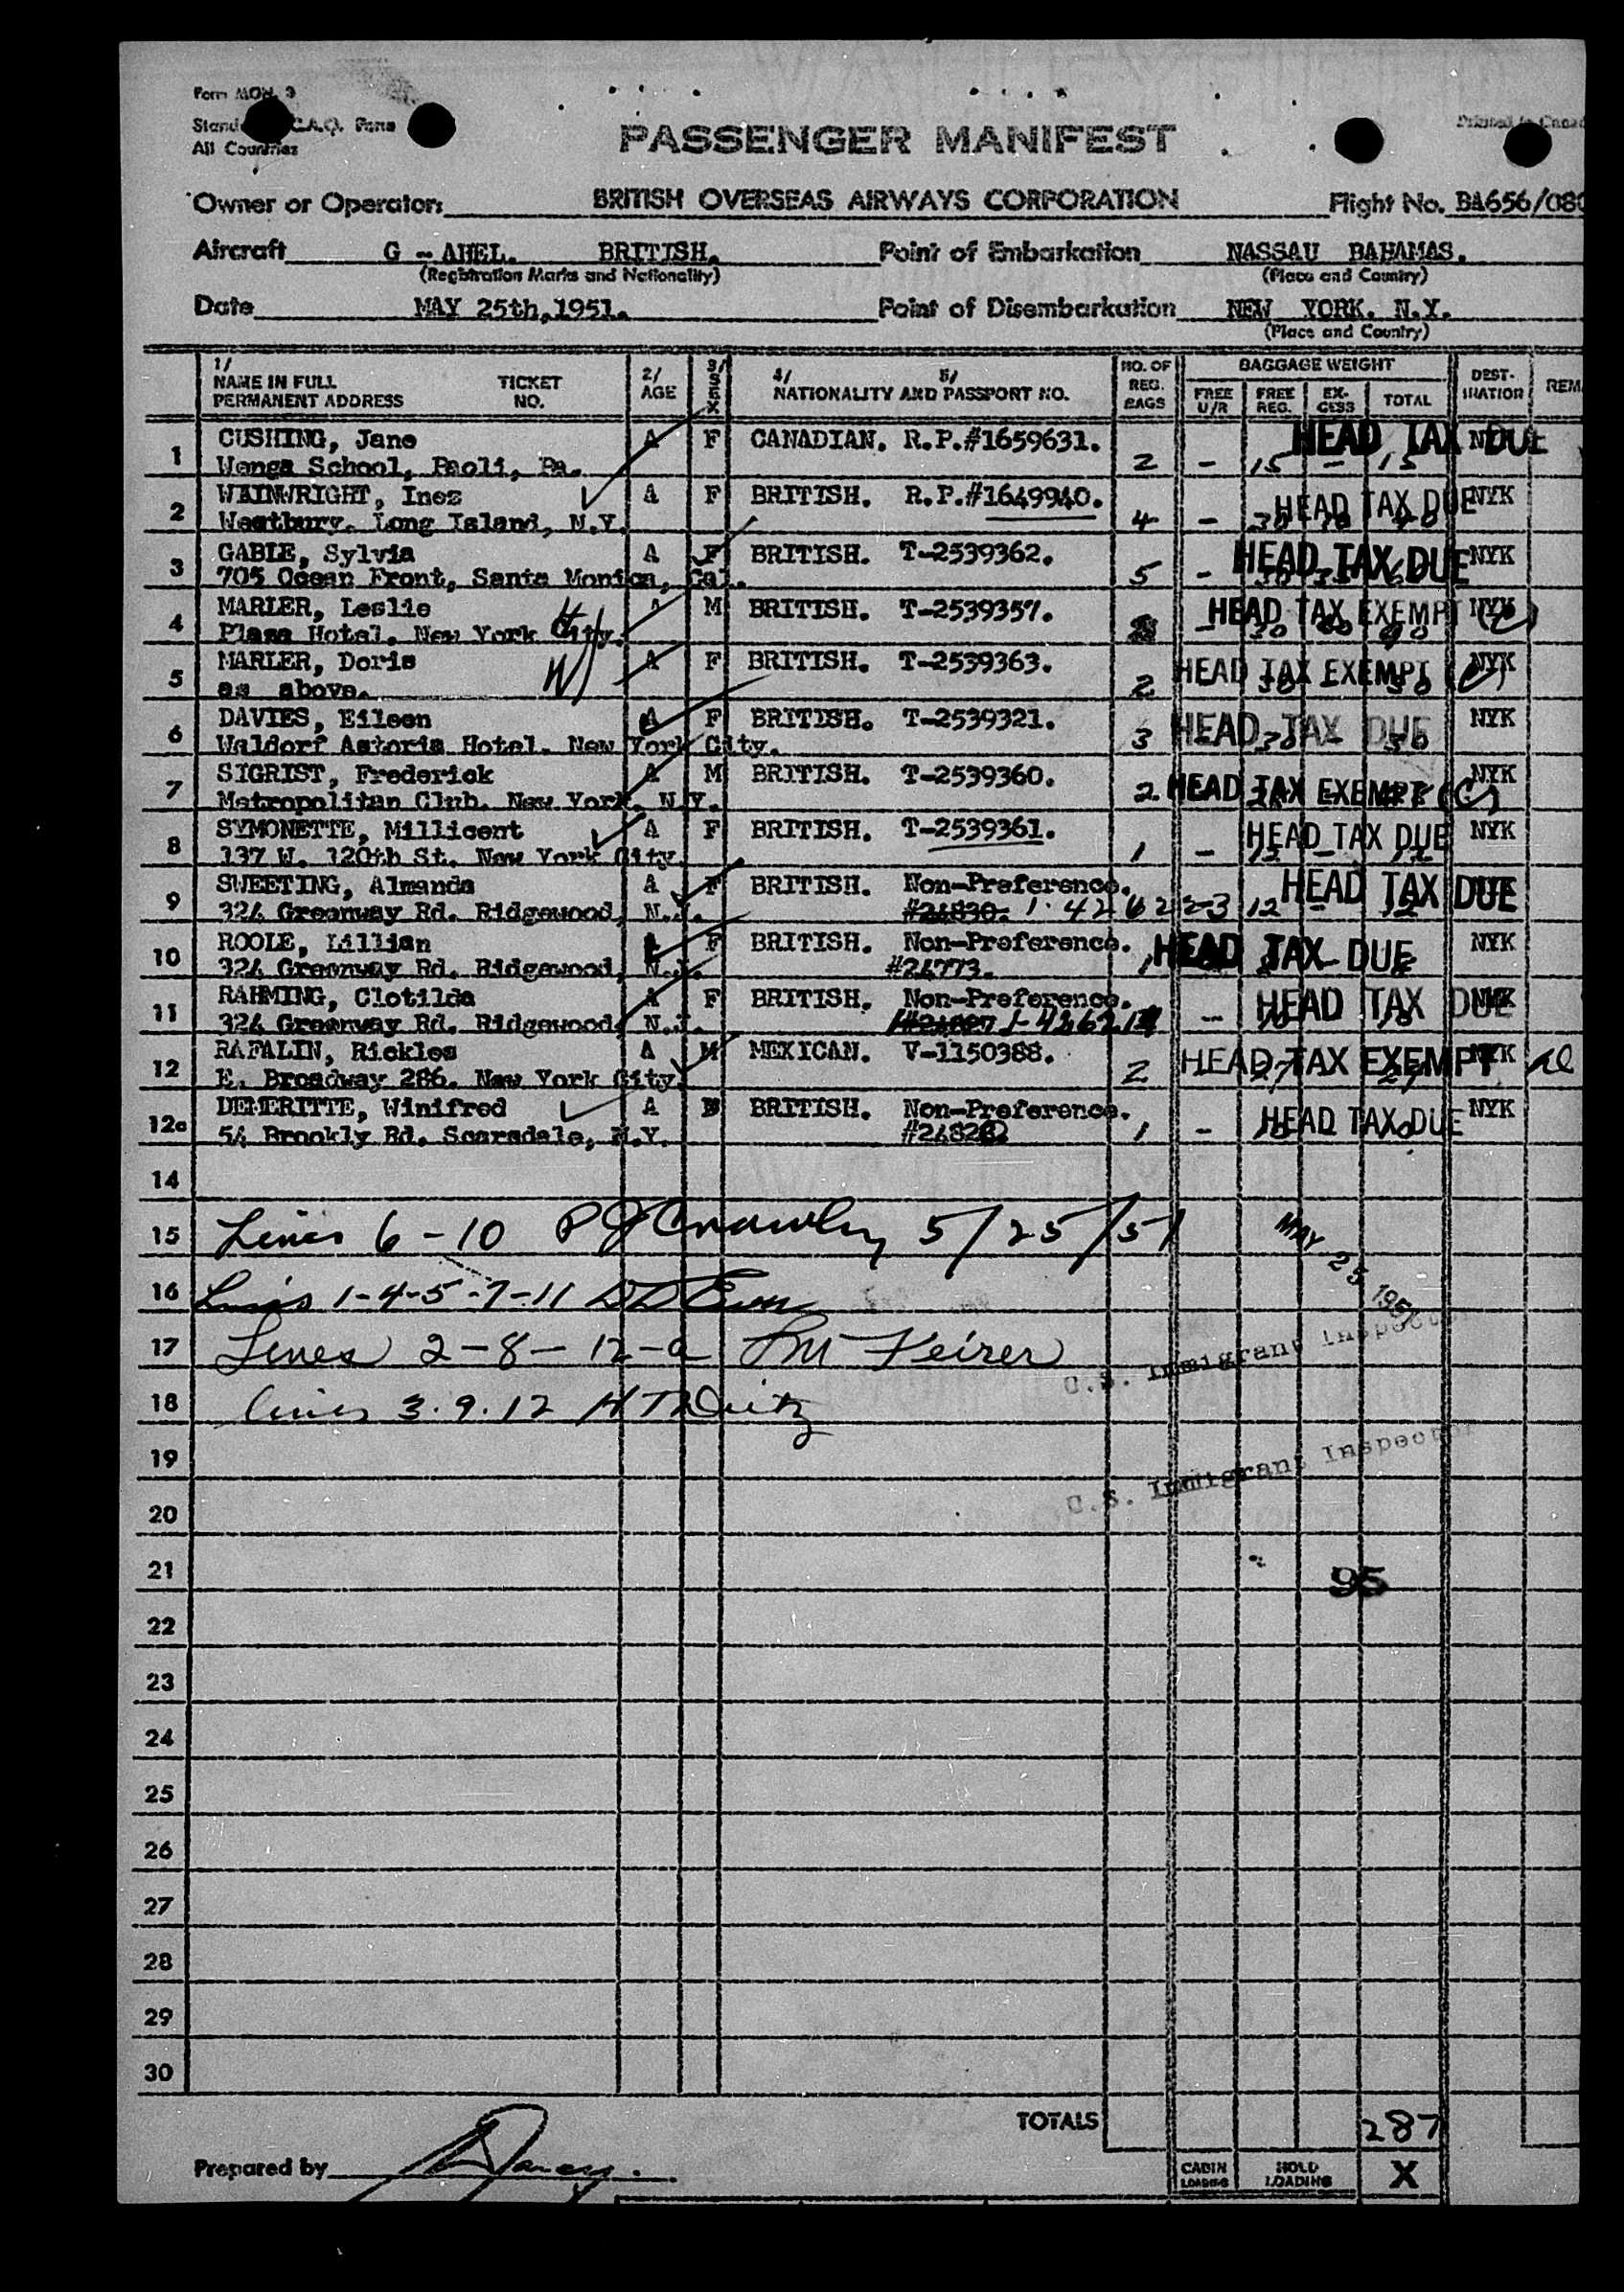 Form MON. 3
C.A.O. Form
All Countries
Printed in Canad
PASSENGER MANIFEST
Owner or Operator: BRITISH OVERSEAS AIRWAYS CORPORATION Flight No. BA656/080
Aircraft G - AHEL. BRITISH. Point of Embarkation NASSAU BAHAMAS.
(Registration Marks and Nationality) (Place and Country)
Date MAY 25th,1951. Point of Disembarkation NEW YORK. N.Y.
(Place and Country)
1/ NAME IN FULL PERMANENT ADDRESS TICKET NO. 2/ AGE 3/ SEX 4/ 5/ NATIONALITY AND PASSPORT NO. NO. OF REG. BAGS BAGGAGE WEIGHT FREE U/R FREE REG. EX-CESS TOTAL DEST-INATION REM
1 CUSHING, Jane A F CANADIAN. R.P.#1659631. HEAD TAX DUE
Wenga School, Paoli, Pa. 2 - 15 - 15
2 WAINWRIGHT, Inez A F BRITISH. R.P.#1649940. HEAD TAX DUE NYK
Westbury. Long Island, N.Y. 4 - 30
3 GABLE, Sylvia A F BRITISH. T-2539362. HEAD TAX DUE NYK
705 Ocean Front, Santa Monica, Cal. 5 -
4 MARLER, Leslie A M BRITISH. T-2539357. HEAD TAX EXEMPT NYK
Plaza Hotel. New York City.
5 MARLER, Doris A F BRITISH. T-2539363. HEAD TAX EXEMPT NYK
as above. 2
6 DAVIES, Eileen A F BRITISH. T-2539321. HEAD TAX DUE NYK
Waldorf Astoria Hotel. New York City. 3
7 SIGRIST, Frederick A M BRITISH. T-2539360. HEAD TAX EXEMPT NYK
Metropolitan Club. New York. N.Y. 2
8 SYMONETTE, Millicent A F BRITISH. T-2539361. HEAD TAX DUE NYK
137 W. 120th St. New York City. 1 - 12
9 SWEETING, Almanda A F BRITISH. Non-Preference. HEAD TAX DUE
324 Greenway Rd. Ridgewood, N.J. #24830. 12
10 ROOLE, Lillian A F BRITISH. Non-Preference. HEAD TAX DUE NYK
324 Greenway Rd. Ridgewood, N.J. #24773. 1
11 RAHMING, Clotilda A F BRITISH. Non-Preference. HEAD TAX DUE
324 Greenway Rd. Ridgewood, N.J.
12 RAFALIN, Rickles A M MEXICAN. V-1150388. HEAD TAX EXEMPT NYK
E. Broadway 286. New York City. 2
12a DEMERITTE, Winifred A F BRITISH. Non-Preference. HEAD TAX DUE NYK
54 Brookly Rd. Scarsdale, N.Y. 1 -
14
15 Lines 6-10 P J Crowley 5/25/51
MAY 25 1951
16 Lines 1-4-5-7-11
17 Lines 2-8-12-a
U.S. Immigrant Inspector
18 Lines 3.9.12
19
U.S. Immigrant Inspector
20
21 95
22
23
24
25
26
27
28
29
30
TOTALS 287
Prepared by CABIN LOADING HOLD LOADING X